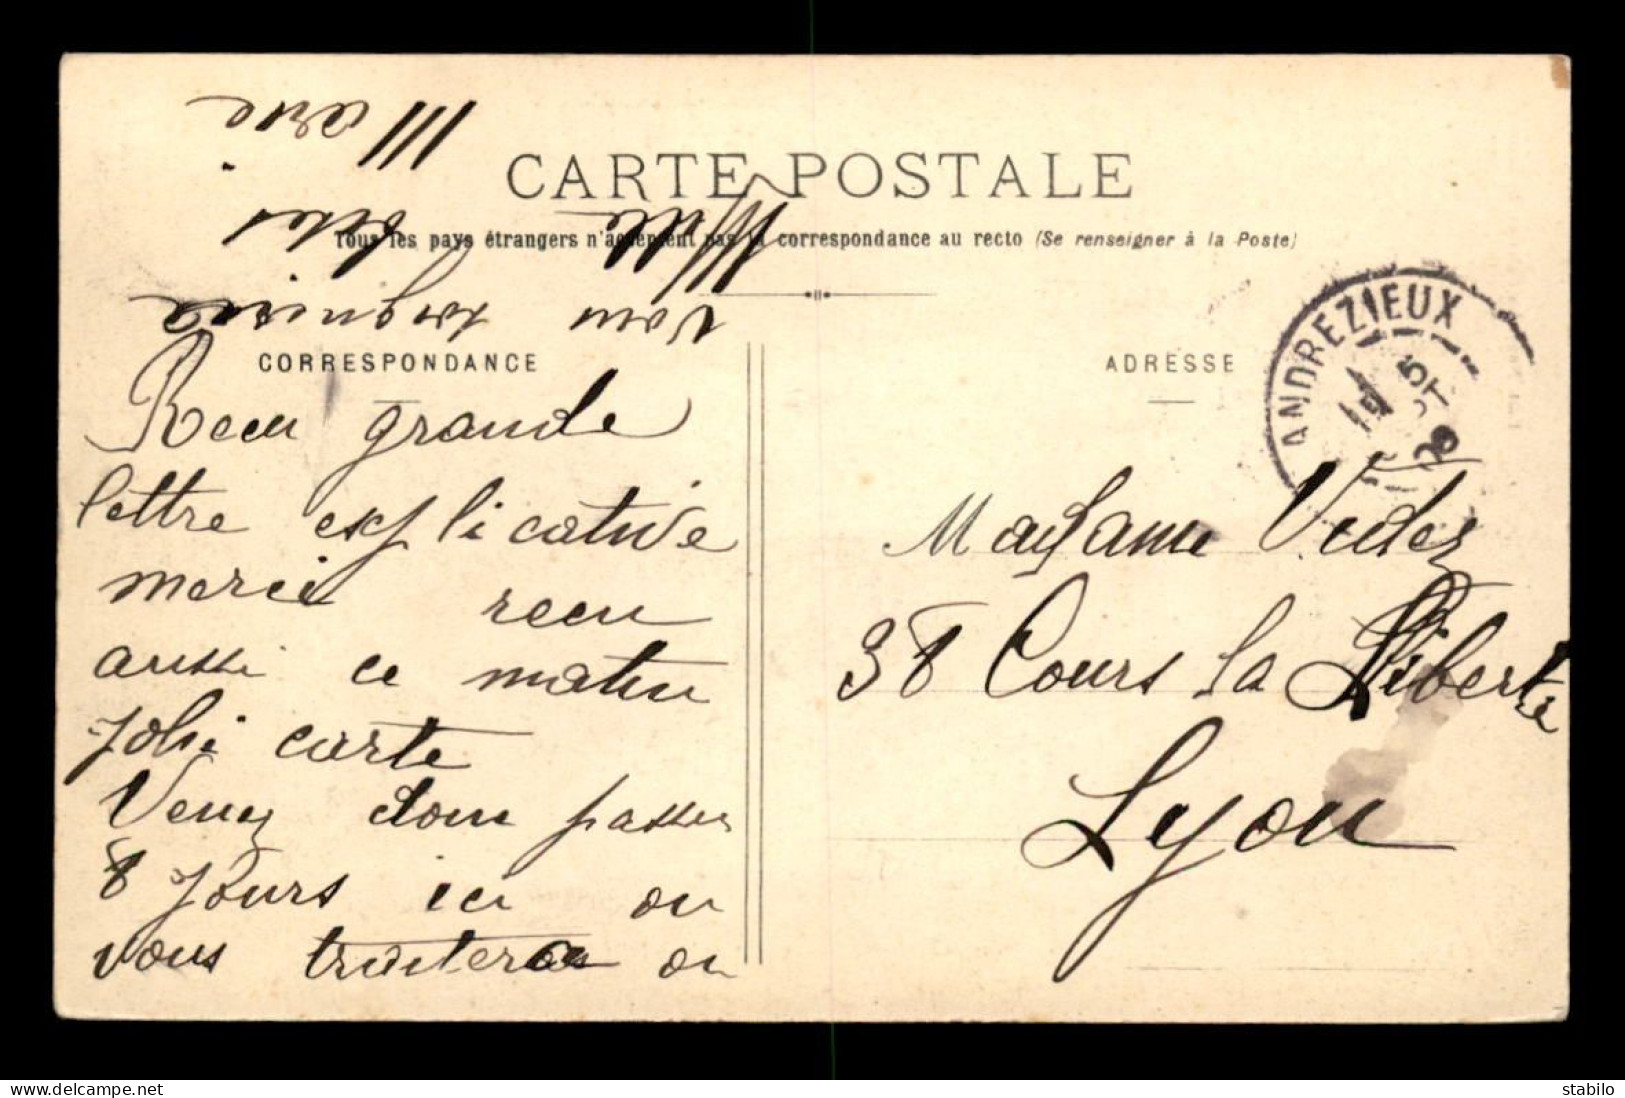 CARTE POSTALE
Tous les pays étrangers n'acceptent pas la correspondance au recto (Se renseigner à la Poste)
CORRESPONDANCE
Recu grande
lettre explicative
merci recu
aussi ce matin
jolie carte
Venez donc passer
8 jours ici on
vous traitera on
vous soignera
Mille bises
Marie
ADRESSE
ANDREZIEUX
5
08
Madame Veder
38 Cours la Liberté
Lyon
delcampe.net
stabilo